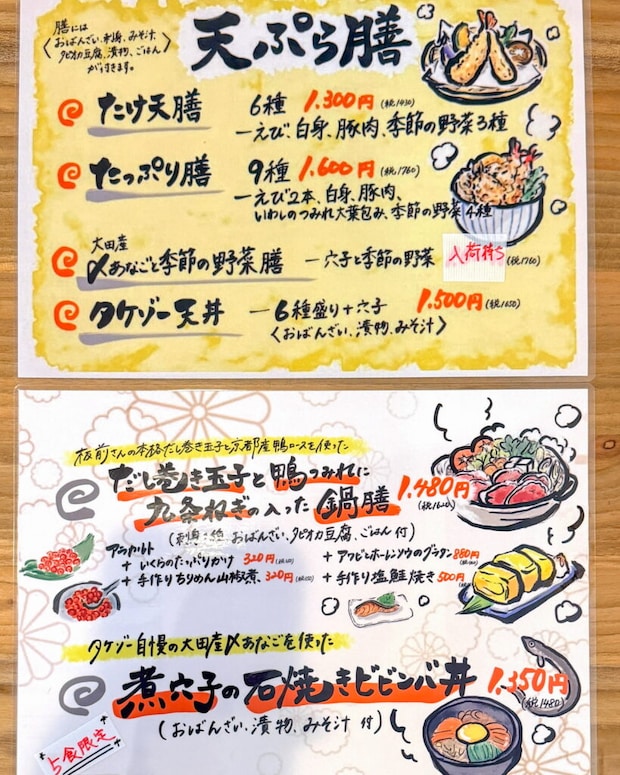 膳には
おばんざい、刺身、みそ汁、
タピオカ豆腐、漬物、ごはん
が付きます。
天ぷら膳
たけ天膳 6種 1.300円(税1430)
ーえび、白身、豚肉、季節の野菜3種
たっぷり膳 9種 1.600円(税1760)
ーえび2本、白身、豚肉、
いわしのつみれ大葉包み、季節の野菜4種
大田産
〆あなごと季節の野菜膳 ー穴子と季節の野菜 入荷待ち (税1760)
タケゾー天丼 ー6種盛り+穴子 1.500円(税1650)
〈おばんざい、漬物、みそ汁〉
板前さんの本格だし巻き玉子と京都産鴨ロースを使った
だし巻き玉子と鴨つみれに
九条ねぎの入った鍋膳 1.480円
(刺身2種、おばんざい、タピオカ豆腐、ごはん付)
アラカルト
+いくらのたっぷりかけ 320円
+手作りちりめん山椒煮、320円
+アワビとホーレンソウのグラタン 880円
+手作り塩鮭焼き 500円
タケゾー自慢の大田産〆あなごを使った
煮穴子の石焼きビビンバ丼 1.350円
(税1480)
(おばんざい、漬物、みそ汁 付)
5食限定